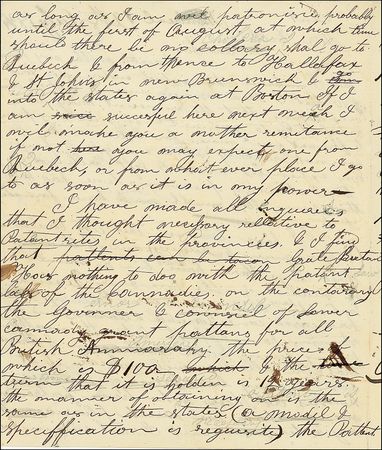 as long as I am patronised probably
until the first of August at which time
should there be no collary shal go to
Quebeck & from thence to Hallafax
& St Johns in new Brunswick &
into the states again at Boston If I
am succesful here next week I
will make you a nother remitance
if not you may expect one from
Quebeck, or from whist ever place I go
to as soon as it is in my power
I have made all inquiries
that I thought necessary relative to
Patant rites in the provincies, & I find
that patents can be Grate Britan
has nothing to doo with the patent
law of the Cannadies. on the contarary
the Governner & councel of Lower
cannady grant pattans for all
British Ammaraky the price
which is $100 which & the
turm that it is holden is 14 years.
the manner of obtaining one is the
same as in the states (a model &
speciffication is requisite) the Pattent